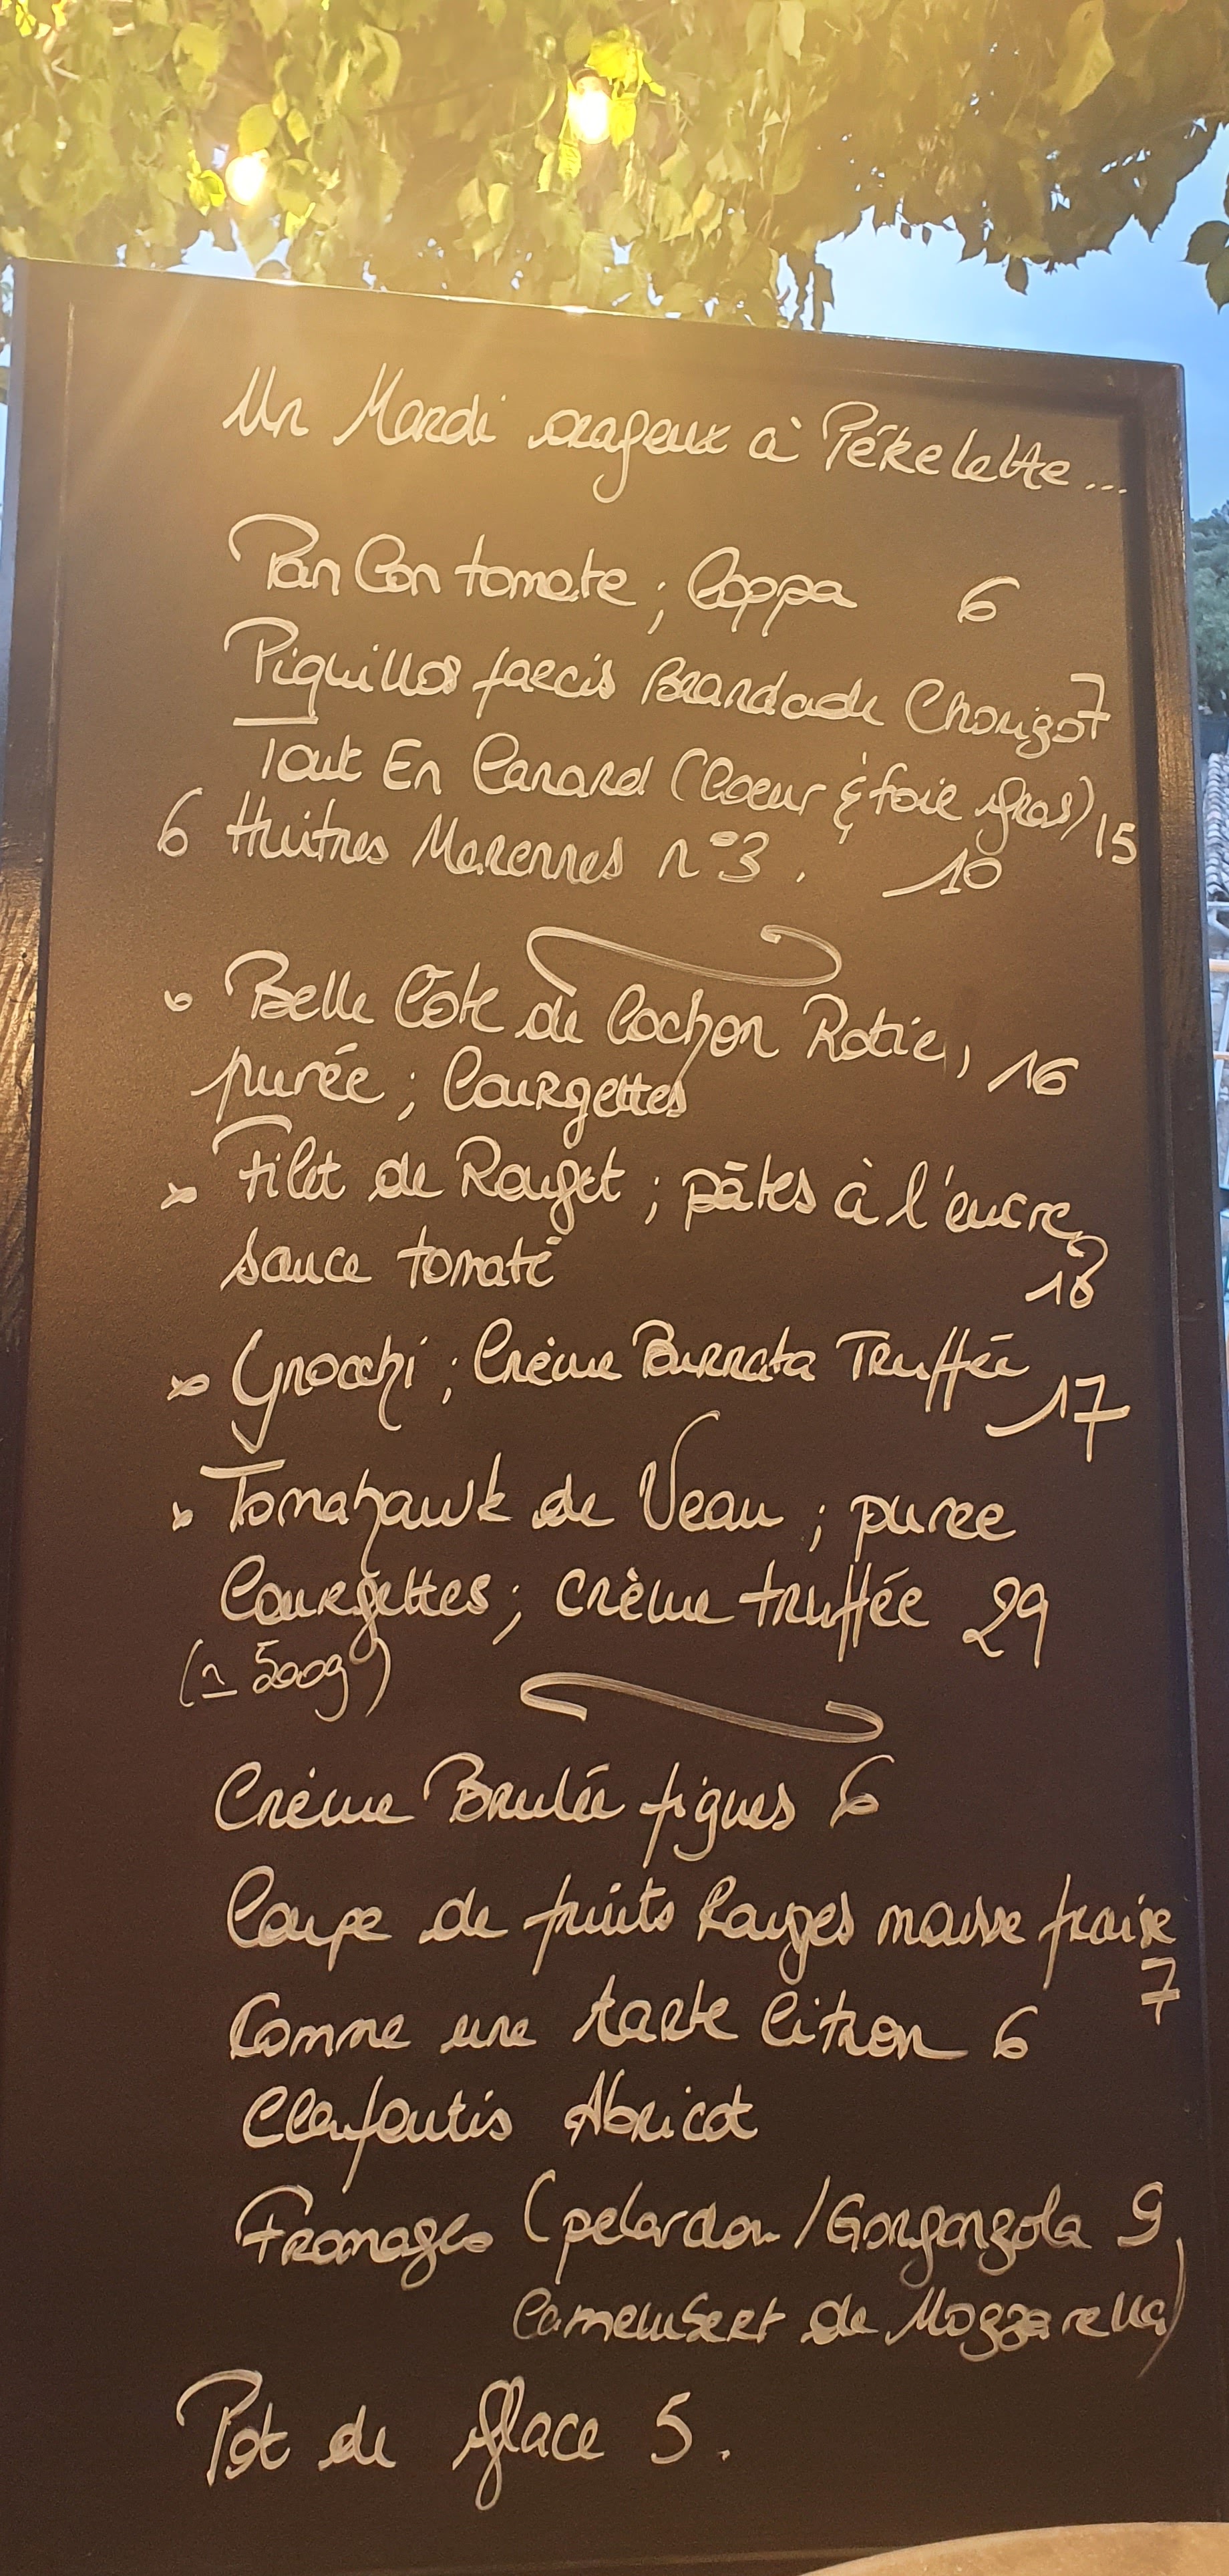 Un Mardi orageux à Pékelette...
Pan Con tomate ; Coppa 6
Piquillos farcis Brandade Chorizo 7
Tout En Canard (Coeur & foie gras) 15
6 Huitres Marennes n°3. 10
Belle Côte de Cochon Rotie, 16
purée ; Courgettes
Filet de Rouget ; pâtes à l'encre,
sauce tomate 18
Gnocchi ; Crème Burrata Truffée
17
Tomahawk de Veau ; puree
Courgettes ; crème truffée 29
(≃ 500g)
Crème Brulée figues 6
Coupe de fruits Rouges mousse fraise
7
Comme une tarte Citron 6
Clafoutis Abricot
Fromages (pelardon / Gorgonzola 9
Camembert de Mozzarella)
Pot de glace 5.